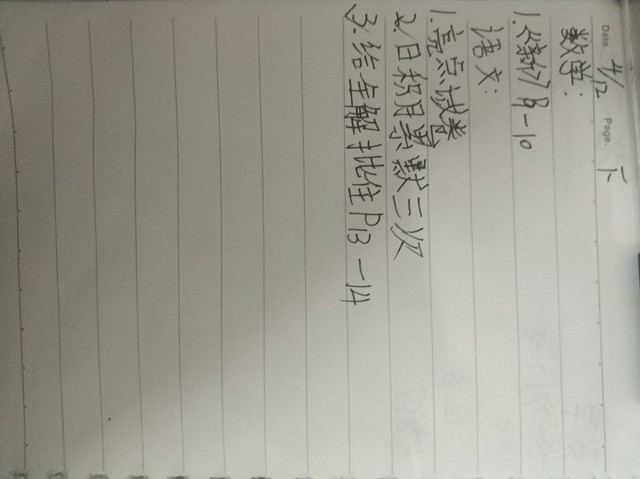 Date. 4/12 Page. 下
数学:
1. 练习 P9-10
语文:
1. 亮点试卷
2. 日积月累默三次
3. 给全解批住P13-14